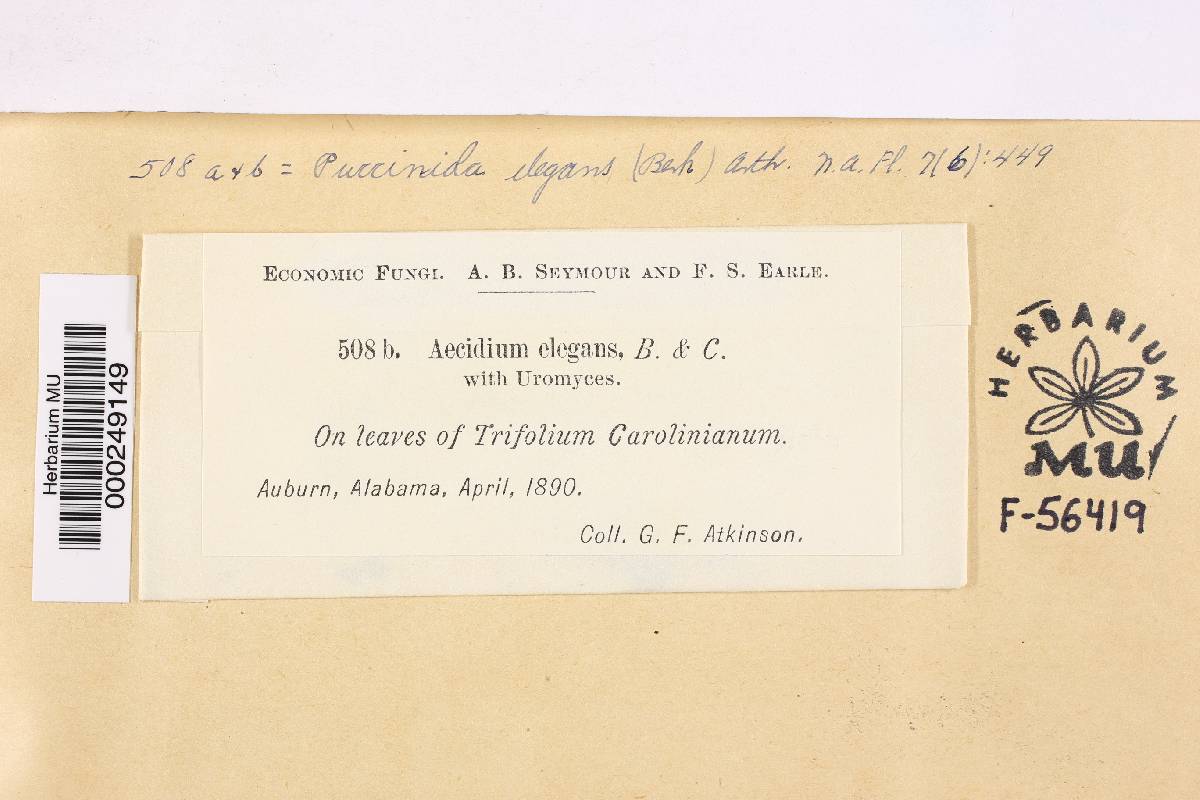 508 a & b = Puccinida elegans (Berk) Arth. N.A. Fl. 7(6):449
Economic Fungi. A. B. Seymour and F. S. Earle.
508 b. Aecidium elegans, B. & C.
with Uromyces.
On leaves of Trifolium Carolinianum.
Auburn, Alabama, April, 1890.
Coll. G. F. Atkinson.
Herbarium MU
000249149
HERBARIUM
MU
F-56419